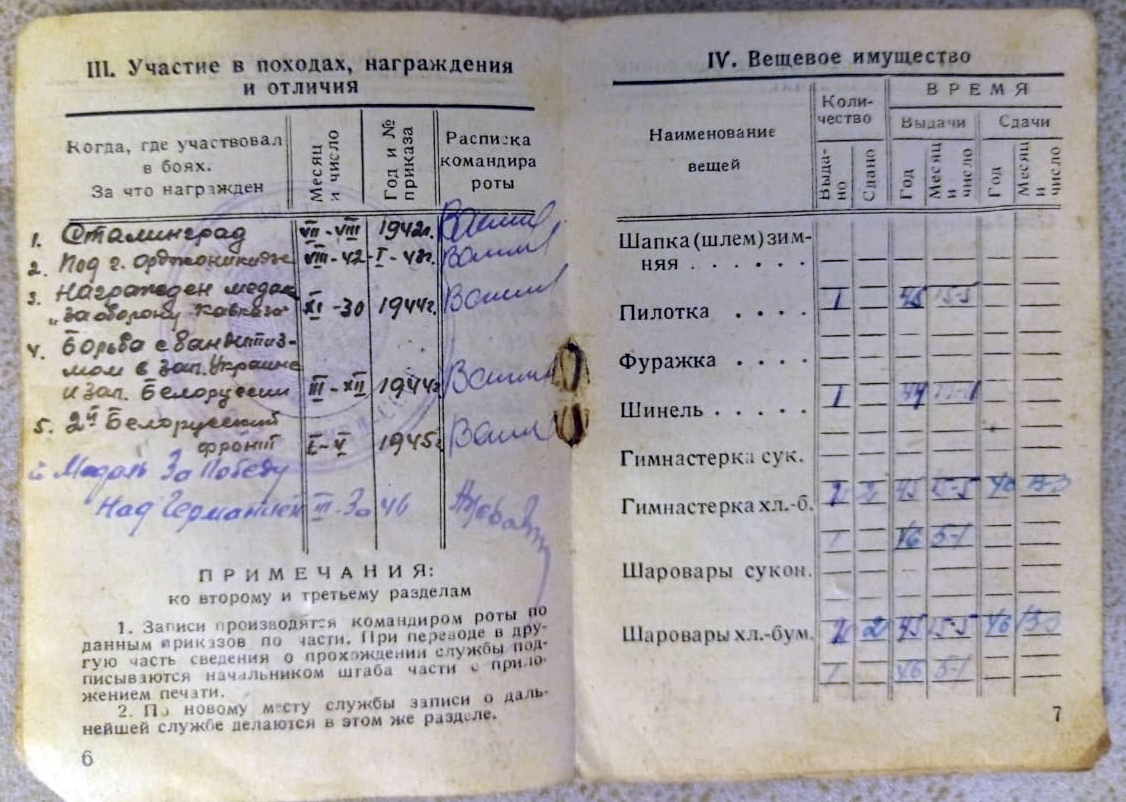 III. Участие в походах, награждения
и отличия
Когда, где участвовал
в боях.
За что награжден
Месяц
и число
Год и №
приказа
Расписка
командира
роты
1. Сталинград VII-VIII 1942г.
2. Под г. Орджоникидзе VIII-42-I-43г.
3. Награжден медал
„За оборону Кавказа" XI-30 1944г.
4. Борьба с бандитиз-
мом в зап. Украине
и зап. Белоруссии III-XII 1944г
5. 2й Белорусский
фронт I-V 1945г
Медаль За Победу
Над Германией III-30 46
ПРИМЕЧАНИЯ:
ко второму и третьему разделам
1. Записи производятся командиром роты по
данным приказов по части. При переводе в дру-
гую часть сведения о прохождении службы под-
писываются начальником штаба части с прило-
жением печати.
2. По новому месту службы записи о даль-
нейшей службе делаются в этом же разделе.
6
IV. Вещевое имущество
Наименование
вещей
Коли-
чество
ВРЕМЯ
Выдачи
Сдачи
Выда-
но
Сдано
Год
Месяц
и
число
Год
Месяц
и
число
Шапка (шлем) зим-
няя . . . . . .
1 45 15-5
Пилотка . . . .
Фуражка . . . .
1 44
Шинель . . . . .
Гимнастерка сук.
2 2 45 15-5 46
Гимнастерка хл.-б.
1 46 5-1
Шаровары сукон.
Шаровары хл.-бум. 2 2 45 15-5 46
1 46 5-1
7